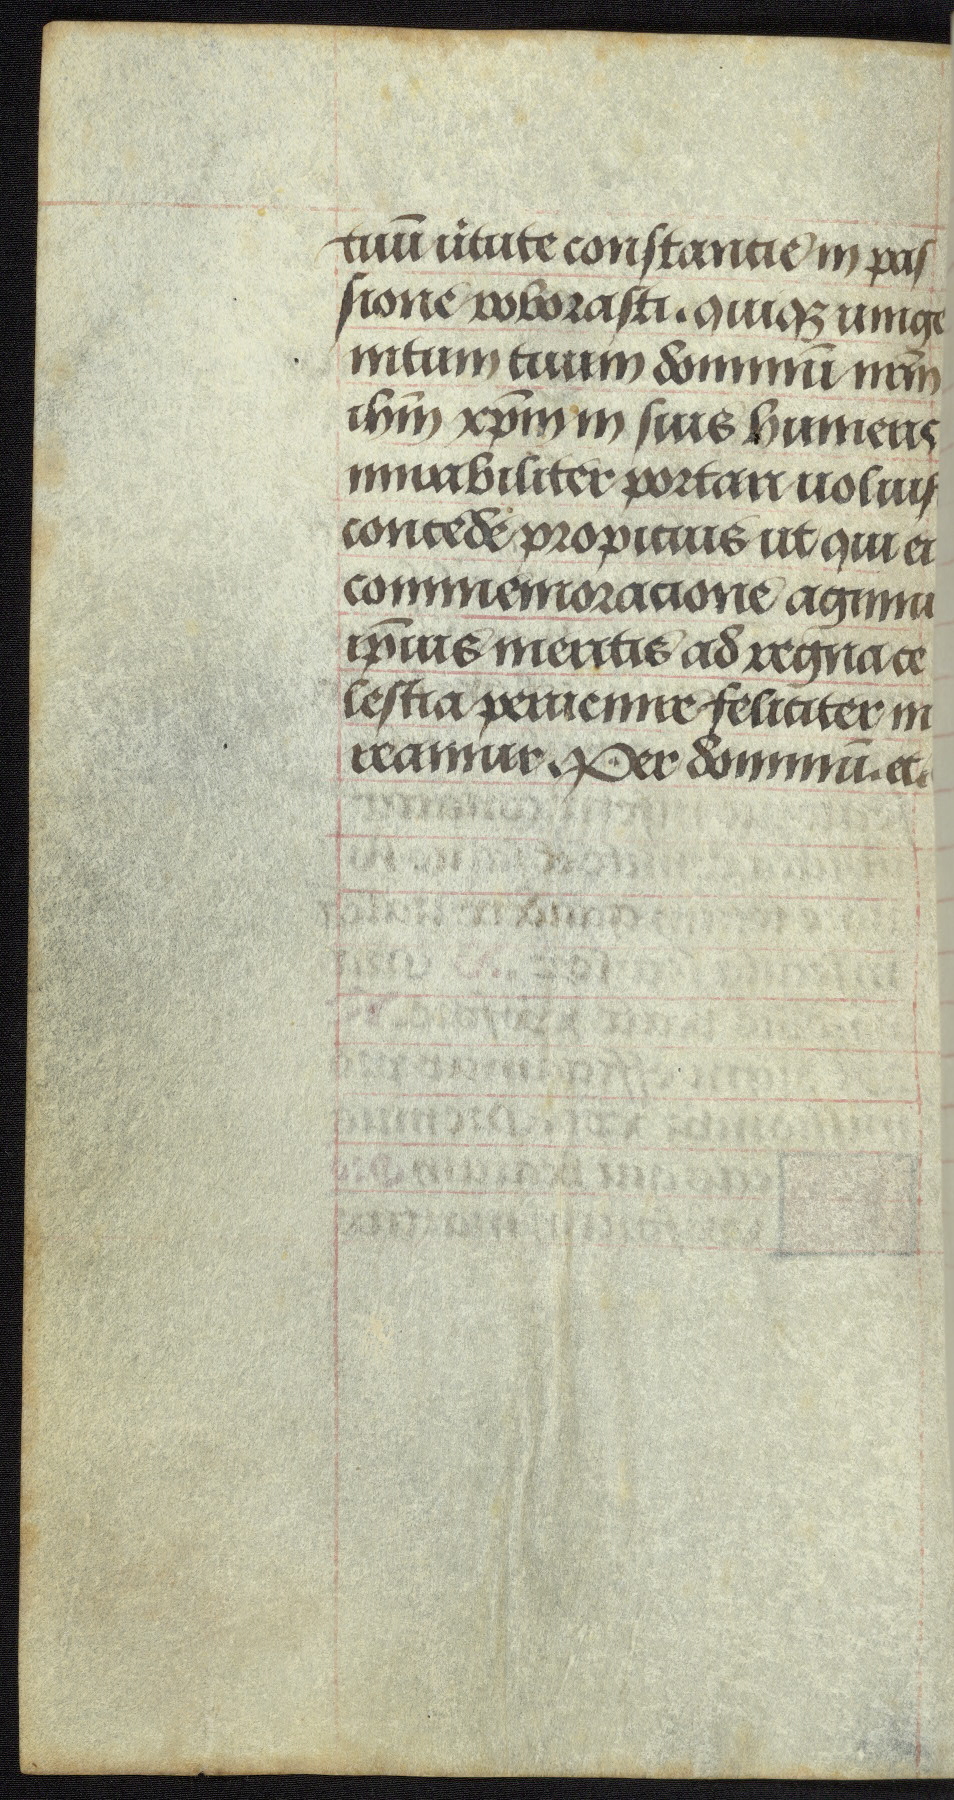 tuū ůtute constancie in pas
sione roborasti. quiqꝫ unige
nitum tuum dominū nr̄m
ihm̄ xp̄m in suis humeris
mirabiliter portari uoluis
concede propicius ut qui ei
commemoracione agimu
ip̄ius meritis ad regna ce
lestia peruenire feliciter m
reamur. Per dominū. et